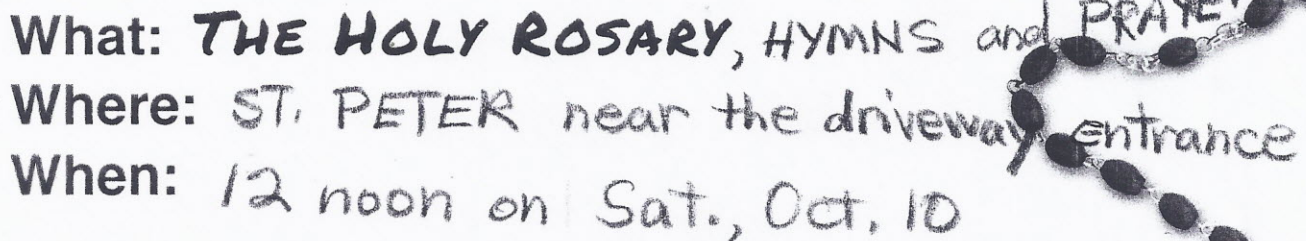 What: THE HOLY ROSARY, HYMNS and PRAYER
Where: ST. PETER near the driveway entrance
When: 12 noon on Sat., Oct. 10